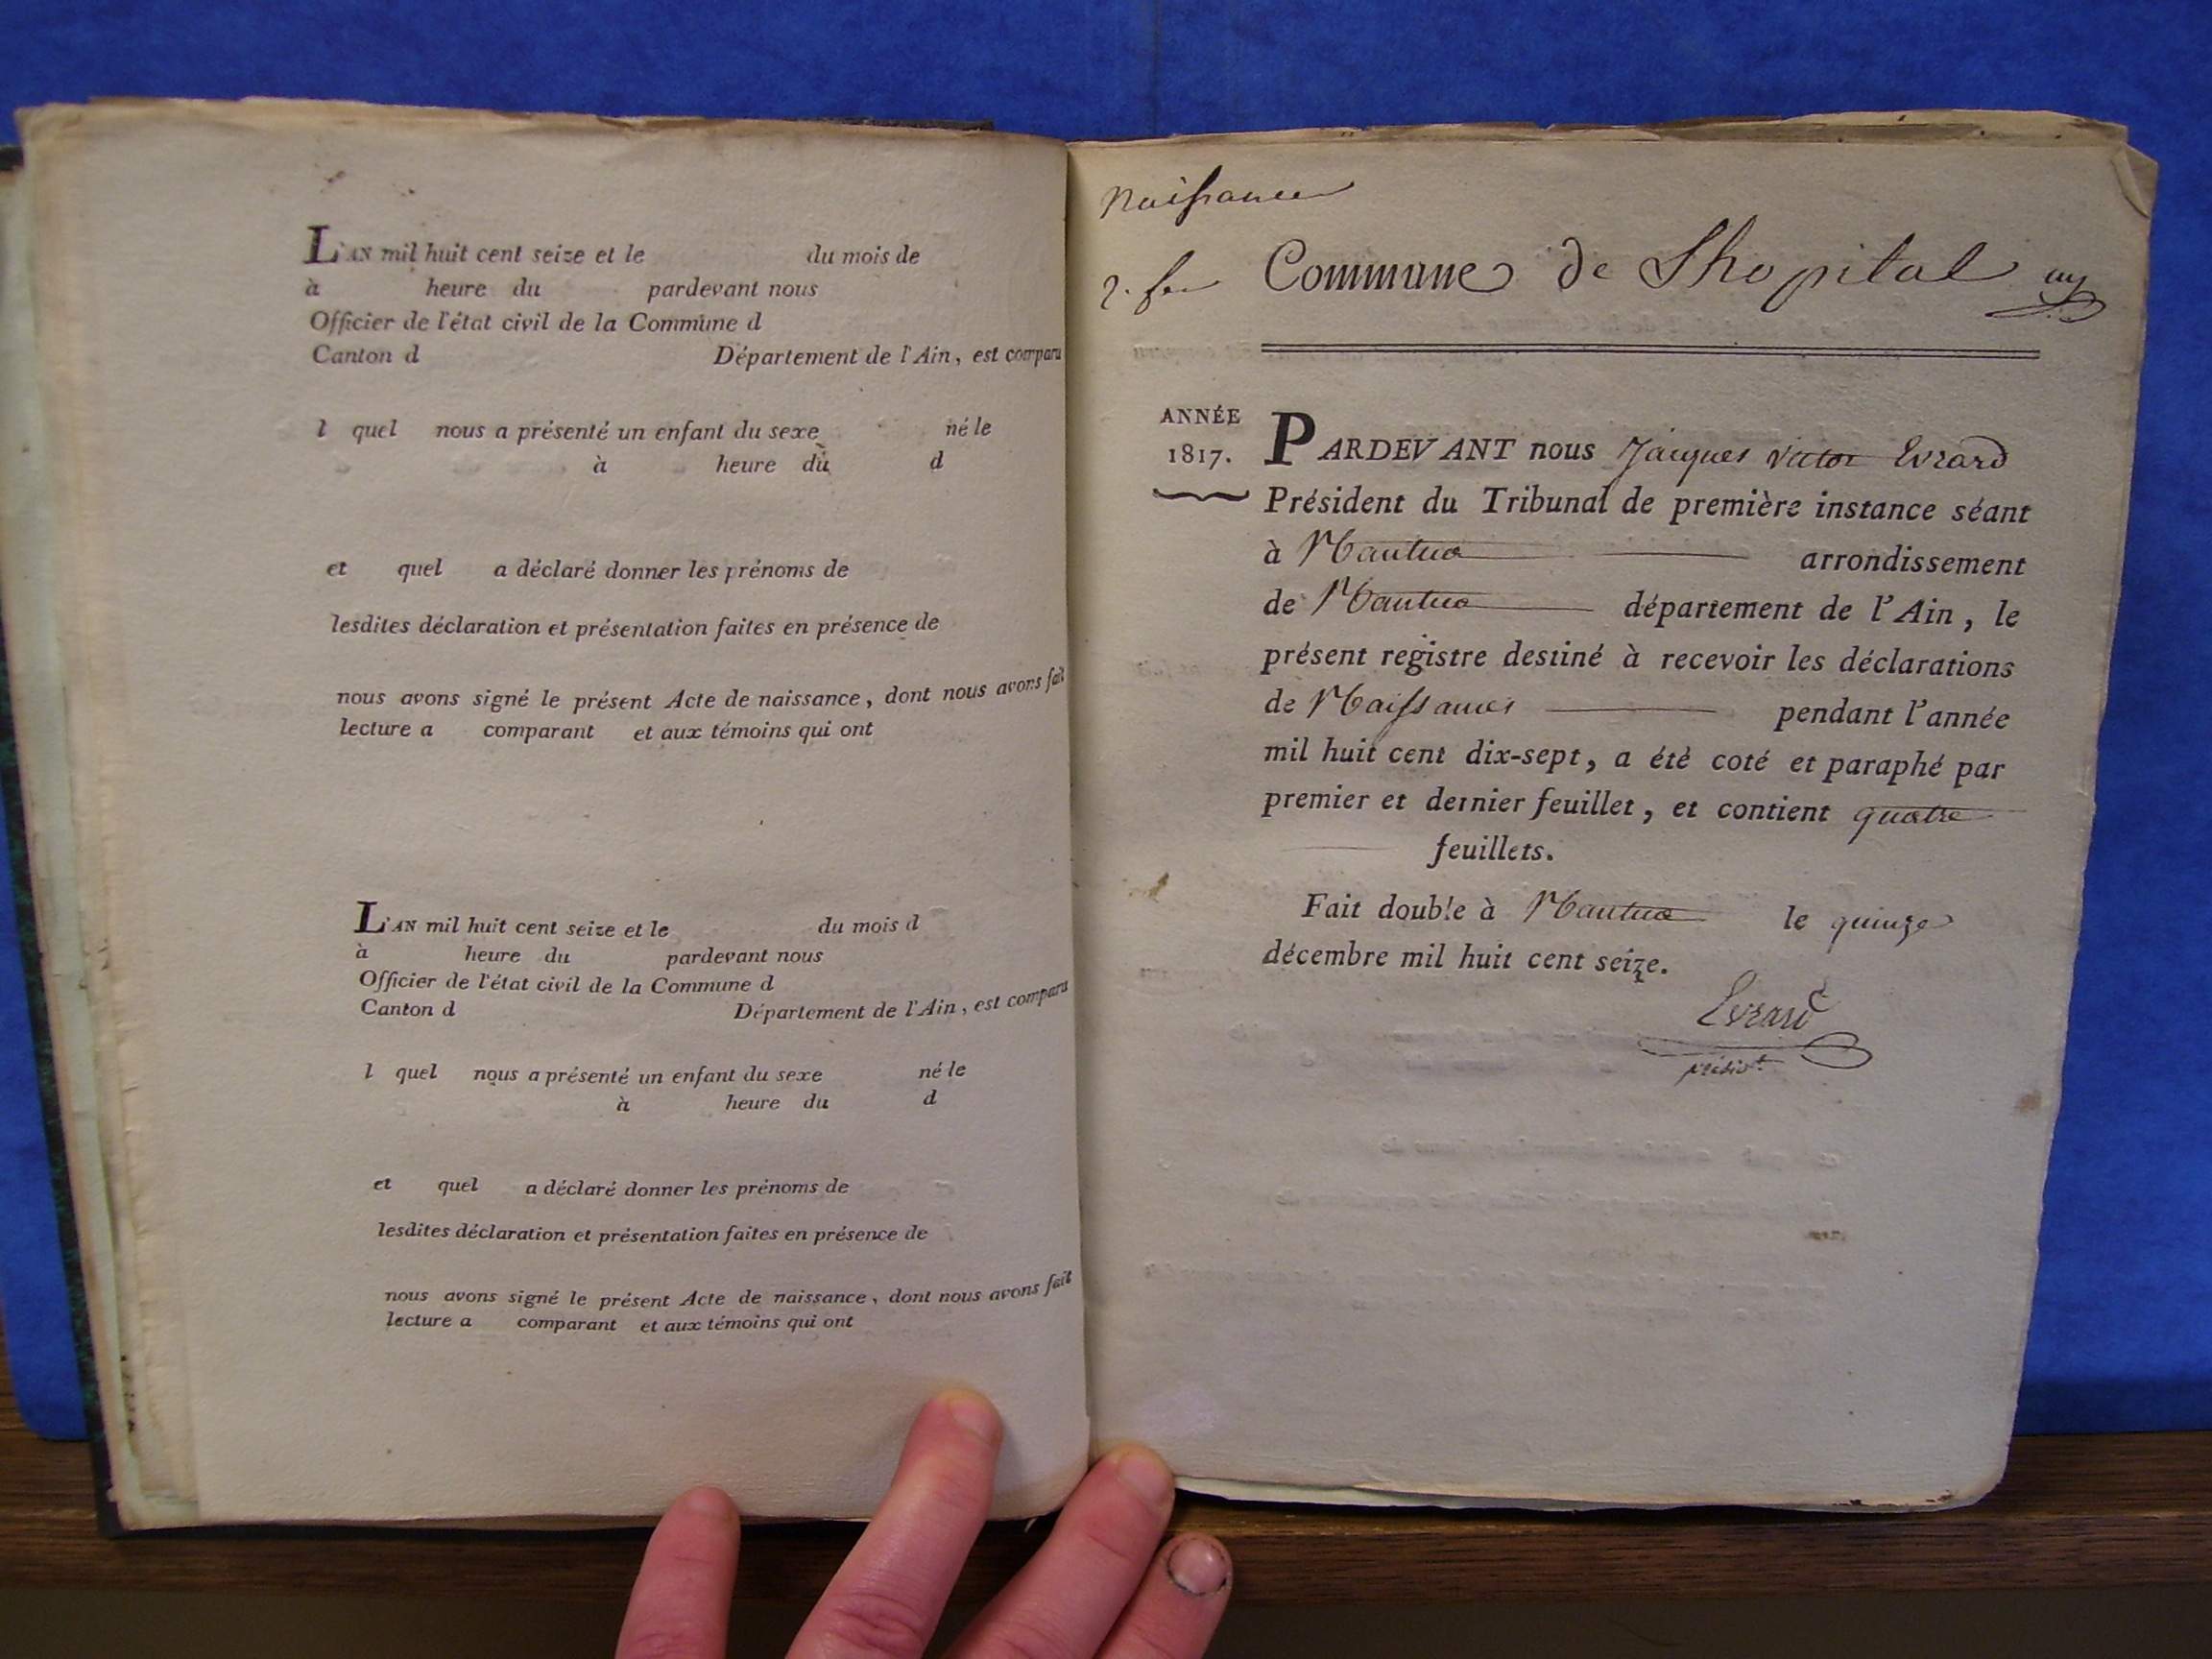 L'AN mil huit cent seize et le du mois de
à heure du pardevant nous
Officier de l'état civil de la Commune d
Canton d Département de l'Ain, est comparu
l quel nous a présenté un enfant du sexe né le
à heure du d
et quel a déclaré donner les prénoms de
lesdites déclaration et présentation faites en présence de
nous avons signé le présent Acte de naissance, dont nous avons fait
lecture a comparant et aux témoins qui ont
L'AN mil huit cent seize et le du mois d
à heure du pardevant nous
Officier de l'état civil de la Commune d
Canton d Département de l'Ain, est comparu
l quel nous a présenté un enfant du sexe né le
à heure du d
et quel a déclaré donner les prénoms de
lesdites déclaration et présentation faites en présence de
nous avons signé le présent Acte de naissance, dont nous avons fait
lecture a comparant et aux témoins qui ont
Naissance
Commune de Lhopital
ANNÉE
1817.
PARDEVANT nous Jacques victor Evrard
Président du Tribunal de première instance séant
à Nantua arrondissement
de Nantua département de l'Ain, le
présent registre destiné à recevoir les déclarations
de Naissances pendant l'année
mil huit cent dix-sept, a été coté et paraphé par
premier et dernier feuillet, et contient quatre
feuillets.
Fait double à Nantua le quinze
décembre mil huit cent seize.
Evrard
présidt